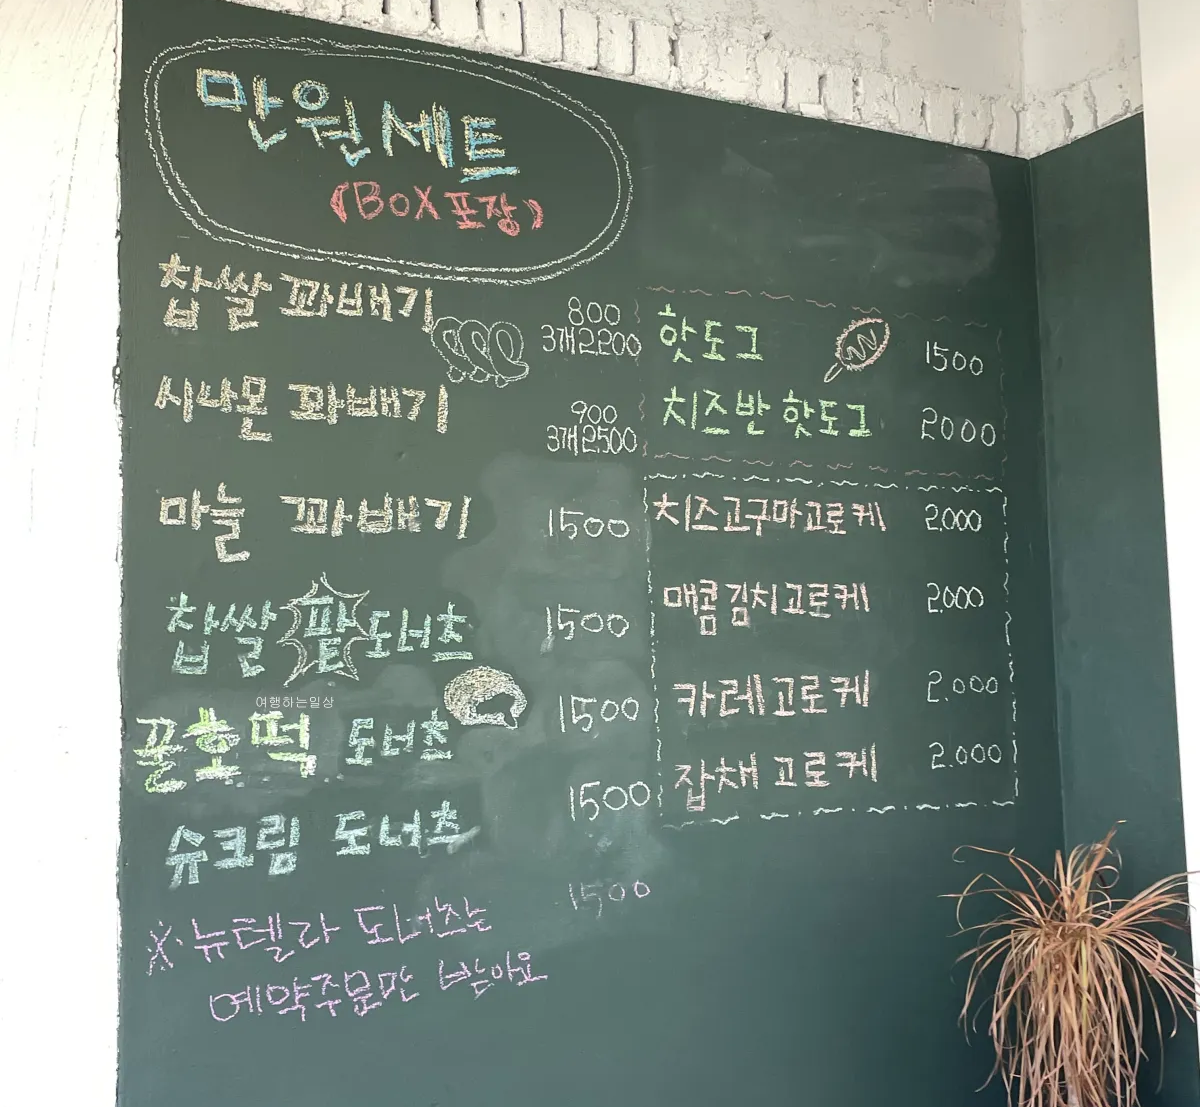 만원세트
(BOX 포장)
찹쌀 꽈배기 800
3개 2,200
시나몬 꽈배기 900
3개 2500
마늘 꽈배기 1500
찹쌀 팥 도너츠 1500
여행하는일상
꿀호떡 도너츠 1500
슈크림 도너츠 1500
※ 뉴텔라 도너츠는 1500
예약주문만 받아요
핫도그 1500
치즈반 핫도그 2000
치즈고구마고로케 2.000
매콤김치고로케 2.000
카레고로케 2.000
잡채고로케 2.000